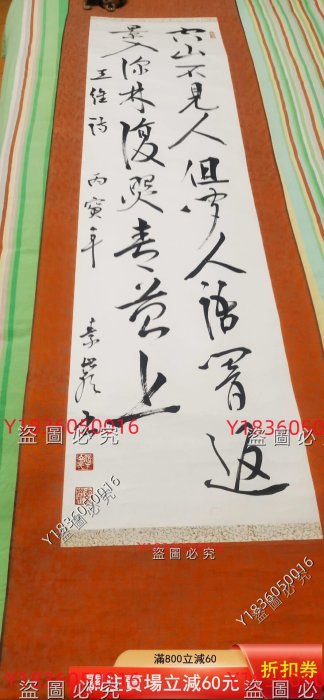 空山不見人但聞人語響返
景入深林復照青苔上
王維詩 丙寅年 素
Y1836050016
盜圖必究
Y1836050016
盜圖必究
Y1836050016
盜圖必究
Y1836050016
盜圖必究
Y1836050016
盜圖必究
滿800立減60
關注賣場立減60元
折扣券
盜圖必究
盜圖必究